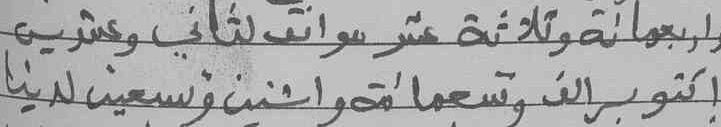 واربعمائة وثلاثة عشر موافق لثاني وعشرين
اكتوبر الف وتسعمائة واثنين وتسعين لدينا